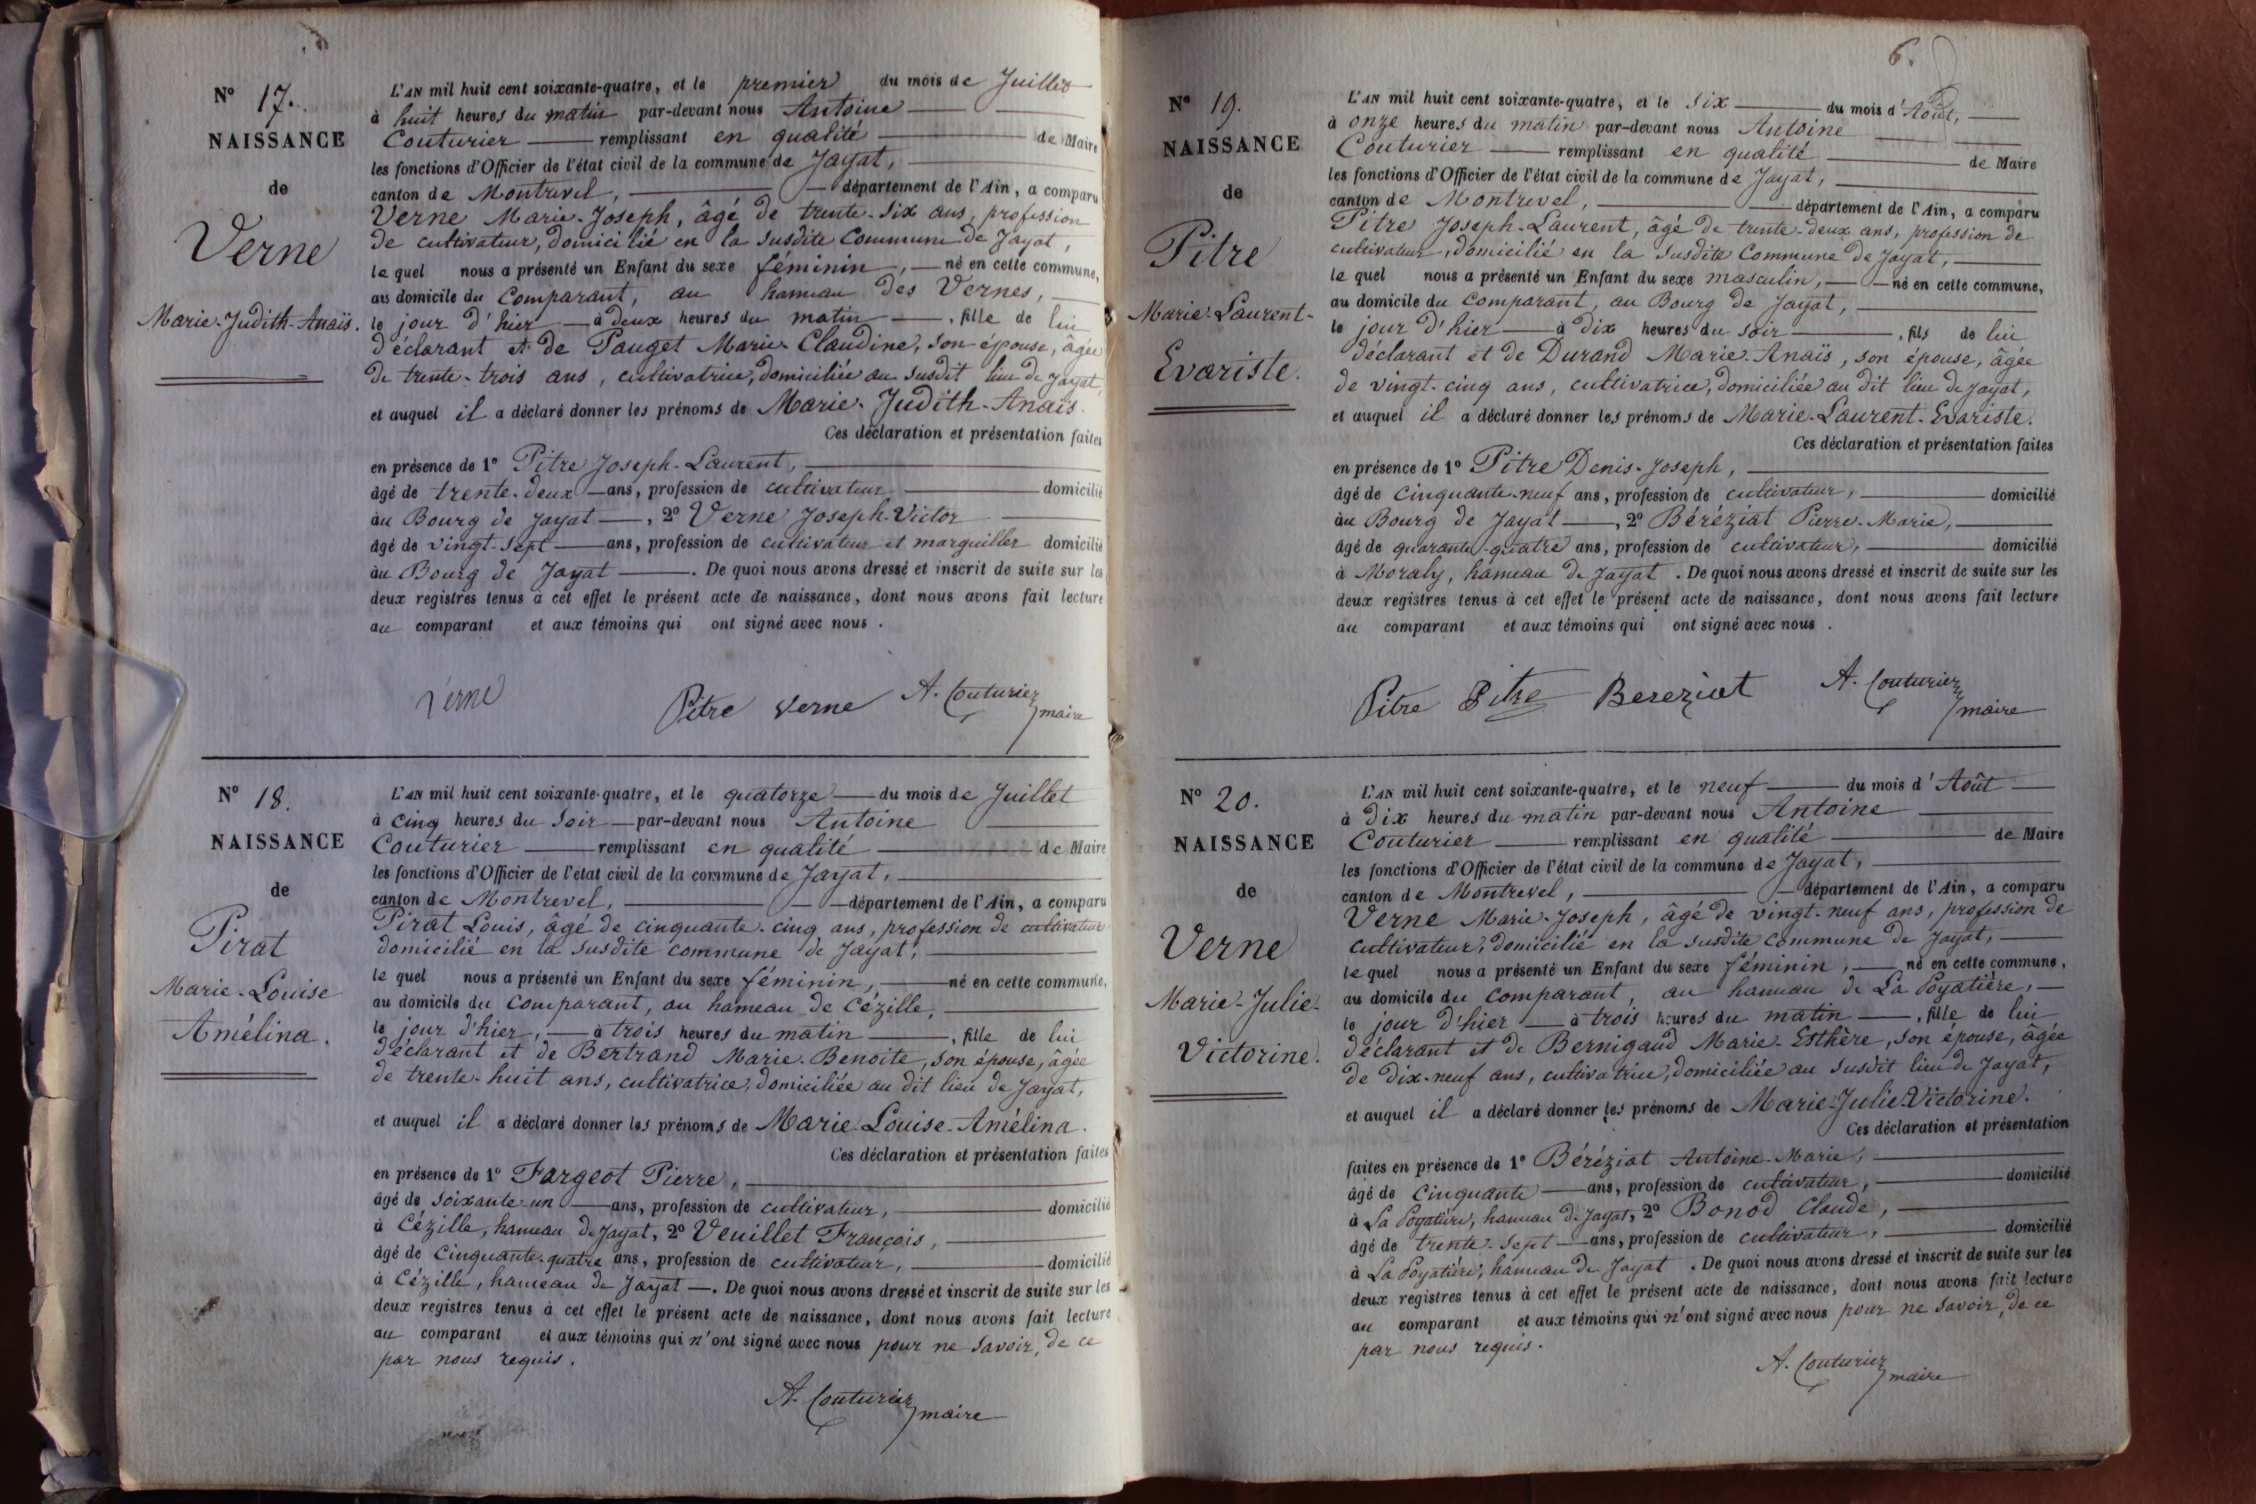 N° 17.
NAISSANCE
de
Verne
Marie-Judith-Anaïs.
L'AN mil huit cent soixante-quatre, et le premier du mois de Juillet
à huit heures du matin par-devant nous Antoine
Couturier remplissant en qualité de Maire
les fonctions d'Officier de l'état civil de la commune de Jayat,
canton de Montrevel, département de l'Ain, a comparu
Verne Marie-Joseph, âgé de trente-six ans, profession
de cultivateur, domicilié en la susdite Commune de Jayat,
le quel nous a présenté un Enfant du sexe féminin, né en cette commune,
au domicile du Comparant, au hameau des Vernes,
le jour d'hier à deux heures du matin, fille de lui
déclarant et de Pauget Marie-Claudine, son épouse, âgée
de trente-trois ans, cultivatrice, domiciliée au susdit lieu de Jayat,
et auquel il a déclaré donner les prénoms de Marie-Judith-Anaïs.
Ces déclaration et présentation faites
en présence de 1° Pitre Joseph-Laurent,
âgé de trente-deux ans, profession de cultivateur domicilié
au Bourg de Jayat, 2° Verne Joseph-Victor
âgé de vingt-sept ans, profession de cultivateur et marguiller domicilié
au Bourg de Jayat. De quoi nous avons dressé et inscrit de suite sur les
deux registres tenus à cet effet le présent acte de naissance, dont nous avons fait lecture
au comparant et aux témoins qui ont signé avec nous.
Verne Pitre Verne A. Couturier
maire
N° 18.
NAISSANCE
de
Pirat
Marie-Louise
Amélina.
L'AN mil huit cent soixante-quatre, et le quatorze du mois de Juillet
à cinq heures du soir par-devant nous Antoine
Couturier remplissant en qualité de Maire
les fonctions d'Officier de l'état civil de la commune de Jayat,
canton de Montrevel, département de l'Ain, a comparu
Pirat Louis, âgé de cinquante-cinq ans, profession de cultivateur
domicilié en la susdite commune de Jayat,
le quel nous a présenté un Enfant du sexe féminin, né en cette commune,
au domicile du comparant, au hameau de Cézille,
le jour d'hier, à trois heures du matin, fille de lui
déclarant et de Bertrand Marie-Benoite, son épouse, âgée
de trente-huit ans, cultivatrice, domiciliée au dit lieu de Jayat,
et auquel il a déclaré donner les prénoms de Marie-Louise-Amélina.
Ces déclaration et présentation faites
en présence de 1° Fargeot Pierre,
âgé de soixante-un ans, profession de cultivateur, domicilié
à Cézille, hameau de Jayat, 2° Veuillet François,
âgé de cinquante-quatre ans, profession de cultivateur, domicilié
à Cézille, hameau de Jayat. De quoi nous avons dressé et inscrit de suite sur les
deux registres tenus à cet effet le présent acte de naissance, dont nous avons fait lecture
au comparant et aux témoins qui n'ont signé avec nous pour ne savoir, de ce
par nous requis.
A. Couturier
maire
6.
N° 19.
NAISSANCE
de
Pitre
Marie-Laurent-
Evariste.
L'AN mil huit cent soixante-quatre, et le six du mois d'Août,
à onze heures du matin par-devant nous Antoine
Couturier remplissant en qualité de Maire
les fonctions d'Officier de l'état civil de la commune de Jayat,
canton de Montrevel, département de l'Ain, a comparu
Pitre Joseph-Laurent, âgé de trente-deux ans, profession de
cultivateur, domicilié en la susdite Commune de Jayat,
le quel nous a présenté un Enfant du sexe masculin, né en cette commune,
au domicile du comparant, au Bourg de Jayat,
le jour d'hier à dix heures du soir, fils de lui
déclarant et de Durand Marie-Anaïs, son épouse, âgée
de vingt-cinq ans, cultivatrice, domiciliée au dit lieu de Jayat,
et auquel il a déclaré donner les prénoms de Marie-Laurent-Evariste.
Ces déclaration et présentation faites
en présence de 1° Pitre Denis-Joseph,
âgé de cinquante-neuf ans, profession de cultivateur, domicilié
au Bourg de Jayat, 2° Béréziat Pierre-Marie,
âgé de quarante-quatre ans, profession de cultivateur, domicilié
à Moraly, hameau de Jayat. De quoi nous avons dressé et inscrit de suite sur les
deux registres tenus à cet effet le présent acte de naissance, dont nous avons fait lecture
au comparant et aux témoins qui ont signé avec nous.
Pitre Pitre Bereziat A. Couturier
maire
N° 20.
NAISSANCE
de
Verne
Marie-Julie-
Victorine.
L'AN mil huit cent soixante-quatre, et le neuf du mois d'Août
à dix heures du matin par-devant nous Antoine
Couturier remplissant en qualité de Maire
les fonctions d'Officier de l'état civil de la commune de Jayat,
canton de Montrevel, département de l'Ain, a comparu
Verne Marie-Joseph, âgé de vingt-neuf ans, profession de
cultivateur, domicilié en la susdite commune de Jayat,
le quel nous a présenté un Enfant du sexe féminin, né en cette commune,
au domicile du comparant, au hameau de La Poyatière,
le jour d'hier à trois heures du matin, fille de lui
déclarant et de Bernigaud Marie-Esthère, son épouse, âgée
de dix-neuf ans, cultivatrice, domiciliée au susdit lieu de Jayat,
et auquel il a déclaré donner les prénoms de Marie-Julie-Victorine.
Ces déclaration et présentation
faites en présence de 1° Béréziat Antoine-Marie,
âgé de cinquante ans, profession de cultivateur, domicilié
à La Poyatière, hameau de Jayat, 2° Bonod Claude,
âgé de trente-sept ans, profession de cultivateur, domicilié
à La Poyatière, hameau de Jayat. De quoi nous avons dressé et inscrit de suite sur les
deux registres tenus à cet effet le présent acte de naissance, dont nous avons fait lecture
au comparant et aux témoins qui n'ont signé avec nous pour ne savoir, de ce
par nous requis.
A. Couturier
maire